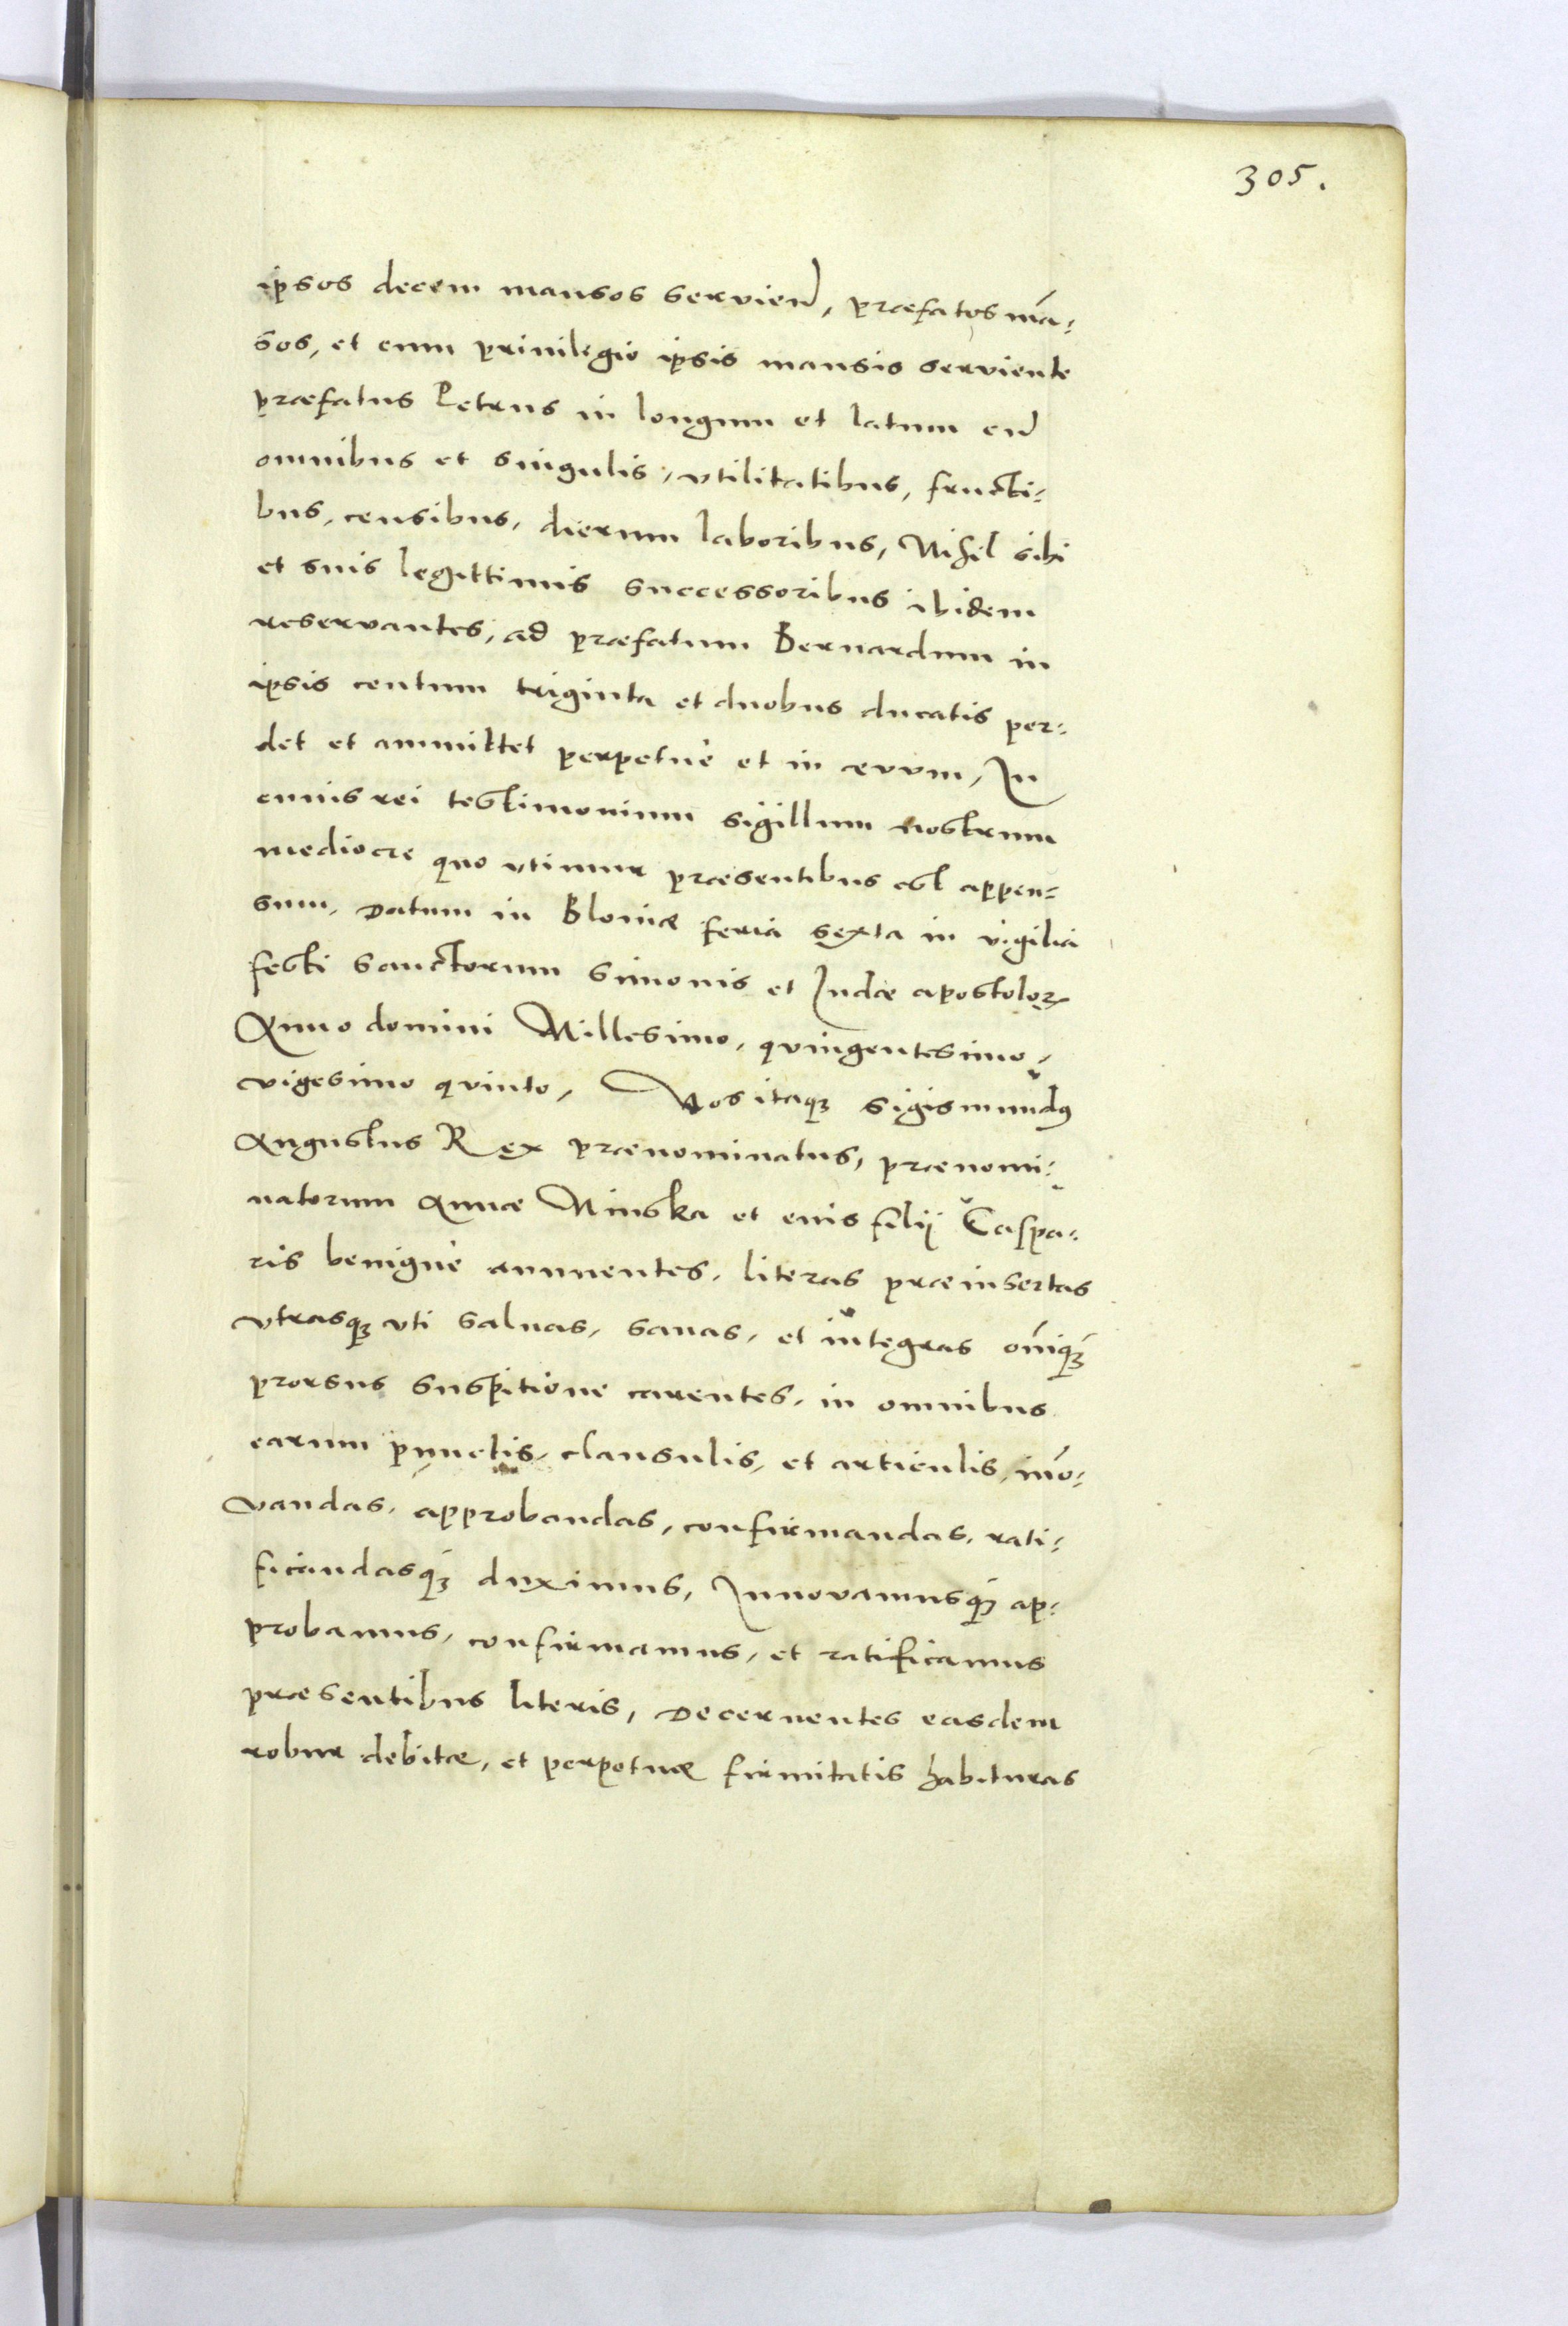 305.
ipsos decem mansos servien̄, præfatos mā-
sos, et cum priuilegio ipsis mansis serviente
præfatus Petrus in longum et latum cū
omnibus et singulis, vtilitatibus, fructi-
bus, censibus, dierum laboribus, Nihil sibi
et suis legittimis successoribus ibidem
reservantes, ad præfatum Bernardum in
ipsis centum triginta et duobus ducatis per-
det et ammittet perpetuè et in ævvm, In
cuius rei testimonium sigillum nostrum
mediocre quo vtimur præsentibus est appen-
sum, Datum in Bloniæ feria sexta in vigilia
festi sanctorum Simonis et Iudæ apostoloꝝ
Anno domini Millesimo, quingentesimo,
vigesimo quinto, Nos itaqȝ Sigismundꝰ
Augustus Rex prænominatus, prænomi-
natorum Annæ Minska et eius filij Caspa-
ris benigne annuentes, literas præinsertas
vtrasqȝ vti saluas, sanas, et integras om̄iqȝ
prorsus suspitione carentes, in omnibus
earum punctis, clausulis, et articulis, īno-
vandas, approbandas, confirmandas, rati-
ficandasqȝ duximus, Innovamusqȝ ap-
probamus, confirmamus, et ratificamus
præsentibus literis, Decernentes easdem
robur debitæ, et perpetuæ firmitatis habituras